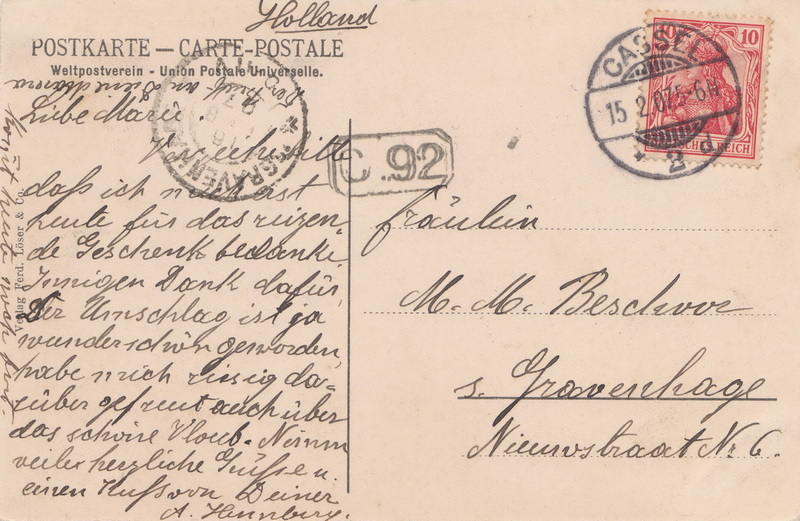 Holland
POSTKARTE — CARTE-POSTALE
Weltpostverein - Union Postale Universelle.
Liebe Marie.
daß ich mich erst
heute für das reizen-
de Geschenk bedanke
Innigen Dank dafür,
Der Umschlag ist ja
wunderschön geworden,
habe mich riesig da-
rüber gefreut auch über
das schöne
viele herzliche Grüße u.
einen Kuß von Deiner
A. Hennberg.
Verlag Ferd. Löser & Co.
'S GRAVENHAGE
C 92
CASSEL
15 2.07.5-6N
* 2 d
10 10
DEUTSCHES REICH
Fräulein
M. M. Beschoor
s. Gravenhage
Nieuwstraat Nr 6.